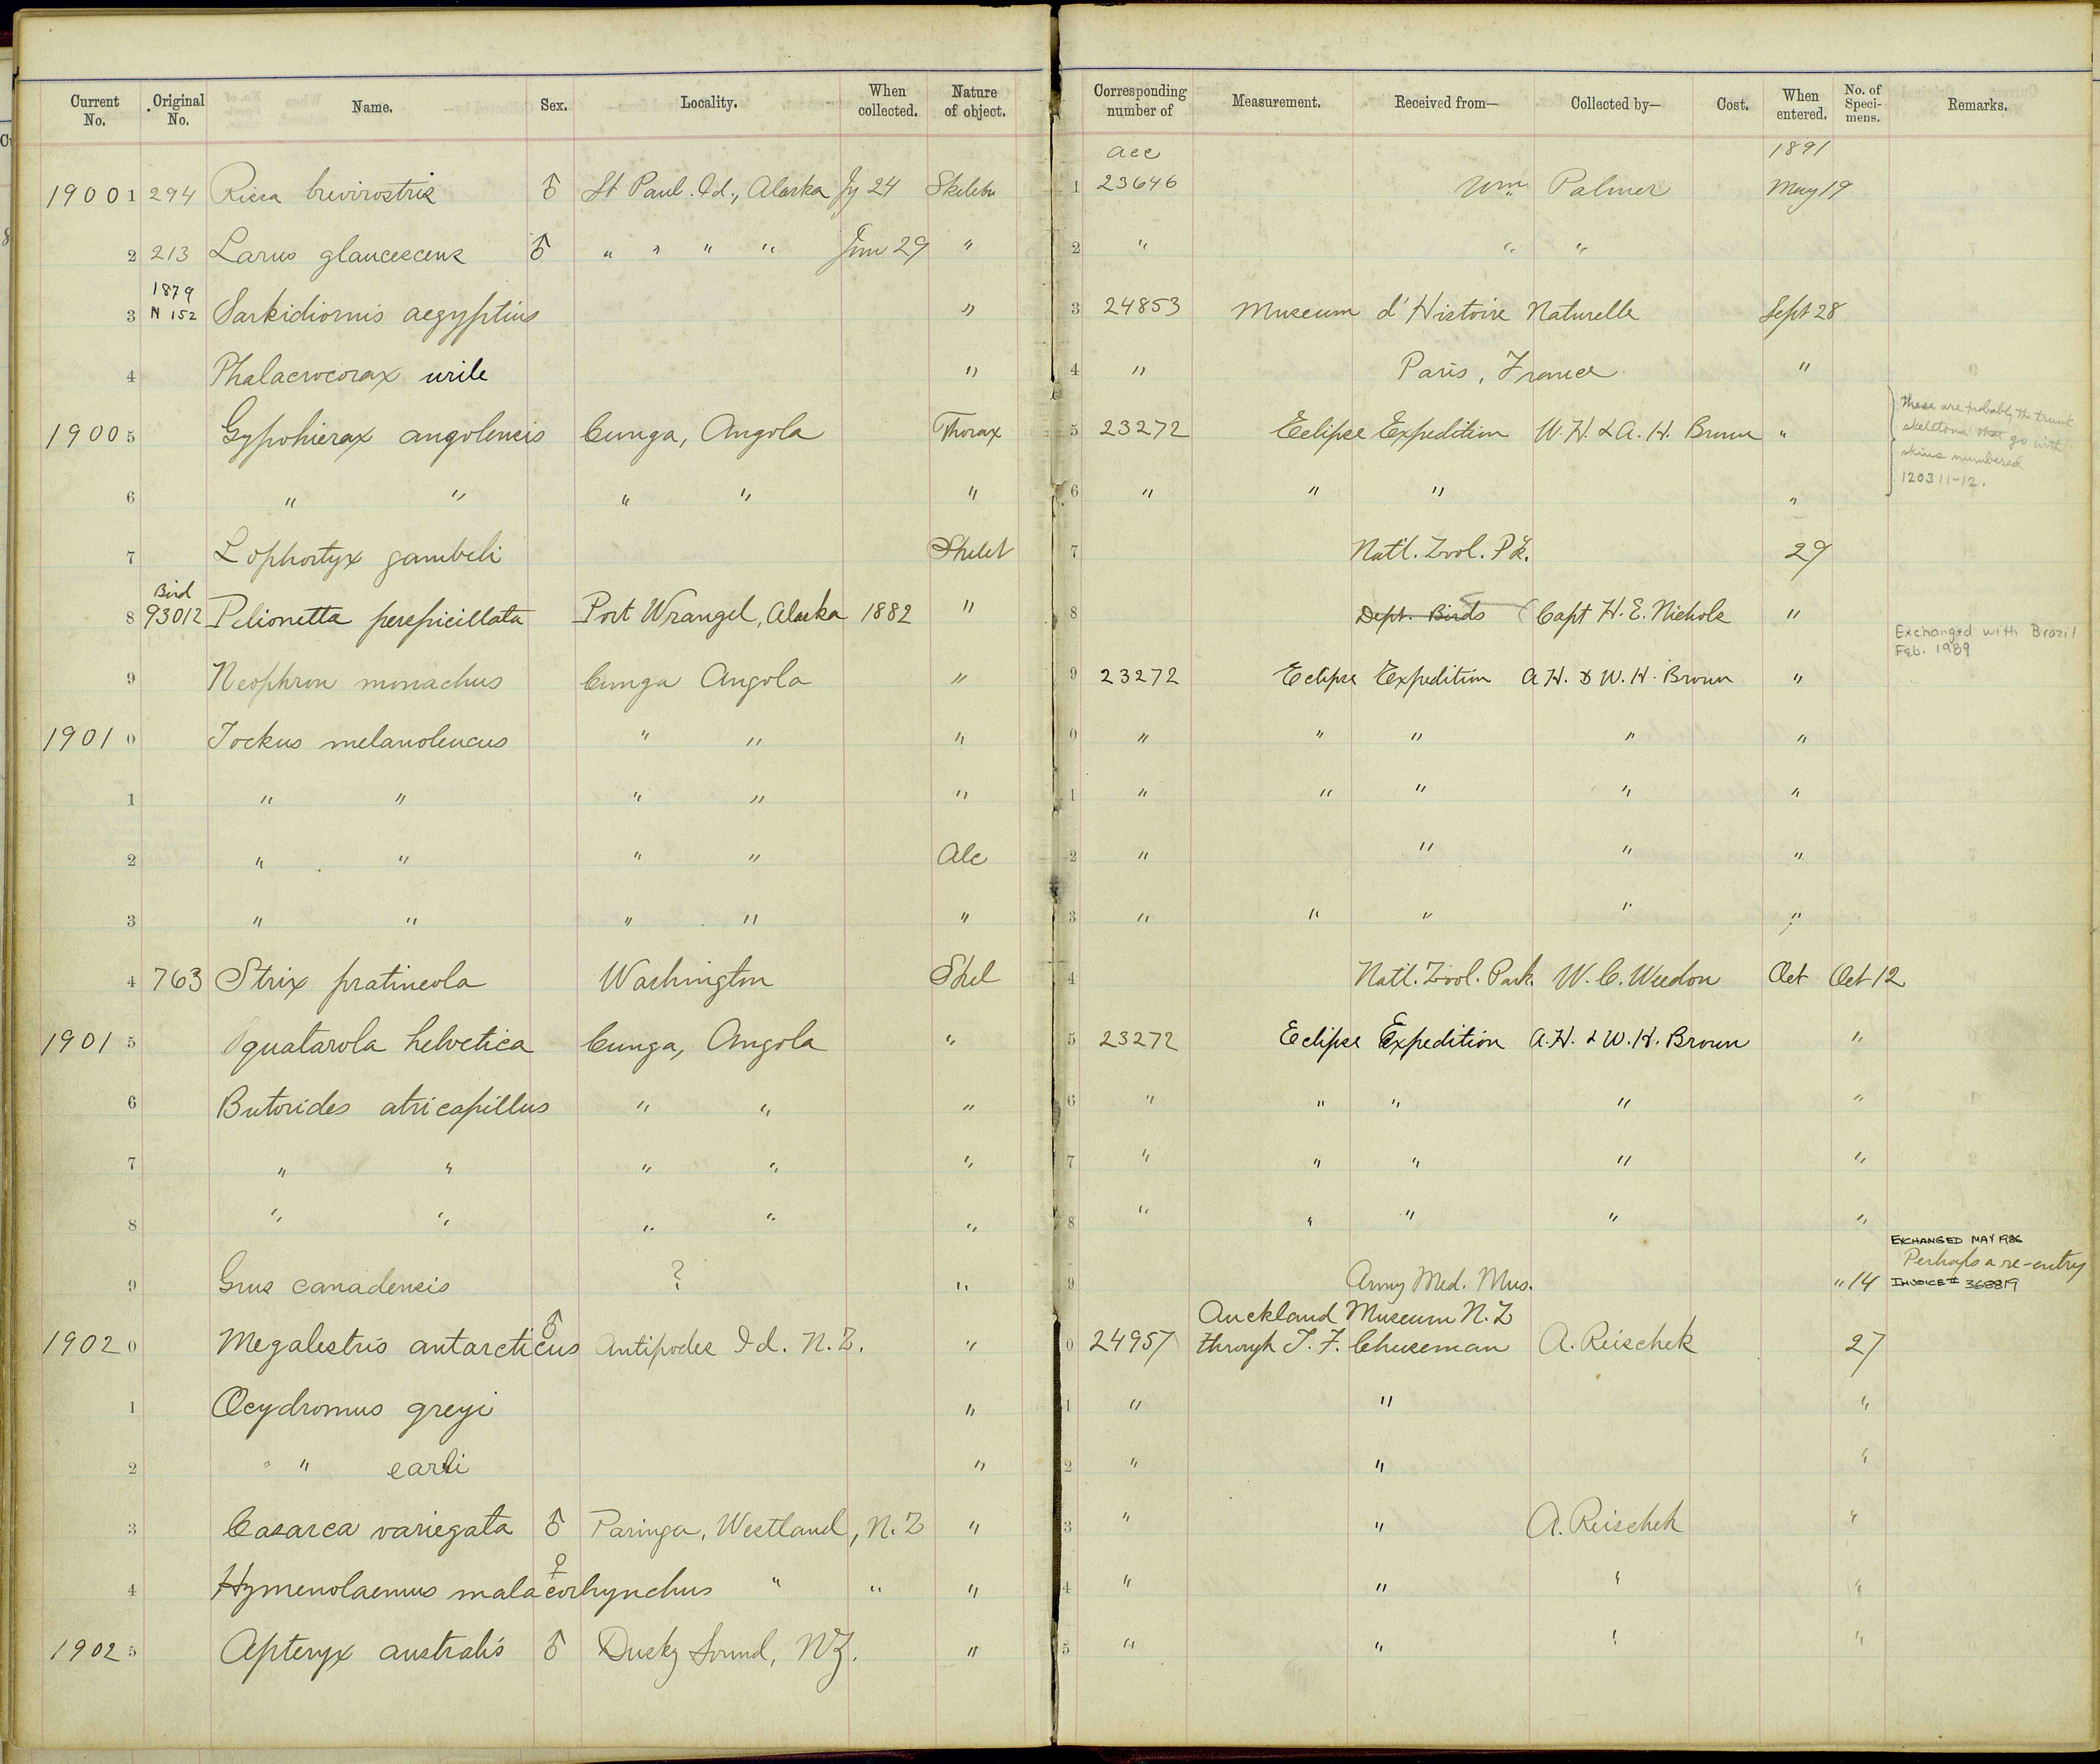 Current No. Original No. Name. Sex. Locality. When collected. Nature of object. Corresponding number of Measurement. Received from— Collected by— Cost. When entered. No. of Specimens. Remarks.
acc 1891
1900 1 294 Rissa brevirostris ♂ St Paul Id., Alaska Jy 24 Skeleton 1 23646 Wm Palmer May 19
2 213 Larus glaucescens ♂ " " " " Jun 29 " 2 " " "
1879
3 N 152 Sarkidiornis aegyptius " 3 24853 Museum d'Histoire Naturelle Sept 28
4 Phalacrocorax urile " 4 " Paris, France "
1900 5 Gypohierax angolensis Cunga, Angola Thorax 5 23272 Eclipse Expedition W. H. & A. H. Brown "
these are probably the trunk
skeletons that go with
skins numbered
120311-12.
6 " " " " " 6 " " " "
7 Lophortyx gambeli Skelet 7 Natl. Zool. Pk. 29
Bird
8 93012 Pelionetta perspicillata Port Wrangel, Alaska 1882 " 8 Dept. Birds Capt H. E. Nichols "
Exchanged with Brazil
Feb. 1989
9 Neophron monachus Cunga Angola " 9 23272 Eclipse Expedition A H. & W. H. Brown "
1901 0 Tockus melanoleucus " " " 0 " " " " "
1 " " " " " 1 " " " " "
2 " " " " Alc 2 " " " "
3 " " " " " 3 " " " " "
4 763 Strix pratincola Washington Skel 4 Natl. Zool. Park. W. C. Weedon Oct Oct 12
1901 5 Squatarola helvetica Cunga, Angola " 5 23272 Eclipse Expedition A. H. & W. H. Brown "
6 Butorides atricapillus " " " 6 " " " " "
7 " " " " " 7 " " " " "
8 " " " " " 8 " " " " "
EXCHANGED MAY 1986
Perhaps a re-entry
9 Grus canadensis ? " 9 Army Med. Mus. " 14 INVOICE # 368819
Auckland Museum N. Z
1902 0 Megalestris antarcticus ♂ Antipodes Id. N. Z. " 0 24957 through T. F. Cheeseman A. Reischek 27
1 Ocydromus greyi " 1 " " "
2 " earli " 2 " " "
3 Casarca variegata ♂ Paringa, Westland, N. Z " 3 " " A. Reischek "
4 Hymenolaemus malacorhynchus ♀ " " " 4 " " " "
1902 5 Apteryx australis ♂ Dusky Sound, NZ. " 5 " " " "